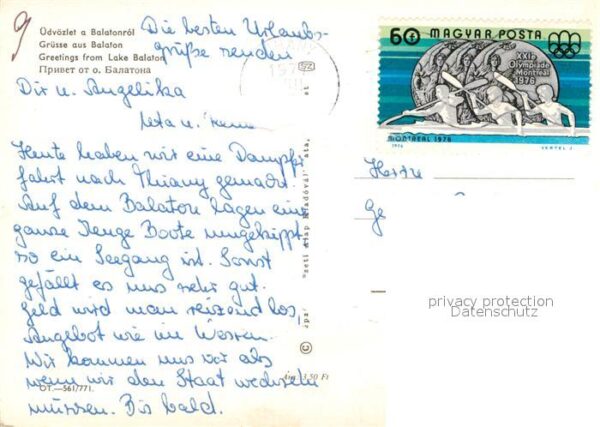 9
Üdvözlet a Balatonról
Grüsse aus Balaton
Greetings from Lake Balaton
Привет от о. Балатона
Die besten Urlaubs-
grüße senden
Dir u. Angelika
Heute haben wir eine Dampfer-
fahrt nach Thiany gemacht.
Auf dem Balaton lagen eine
ganze Menge Boote umgekippt
so ein Seegang ist. Sonst
gefällt es uns sehr gut.
Geld wird man reizend los,
Angebot wie im Westen.
Wir kommen uns vor als
wenn wir den Staat wechseln
müssen. Bis bald.
OT.—561/771.
Ára: 3,50 Ft
60f MAGYAR POSTA
XXI.
Olympiade
Montreal
1976
MONTREAL 1976
1976
VERTEL J.
Herrn
Ge
privacy protection
Datenschutz
©